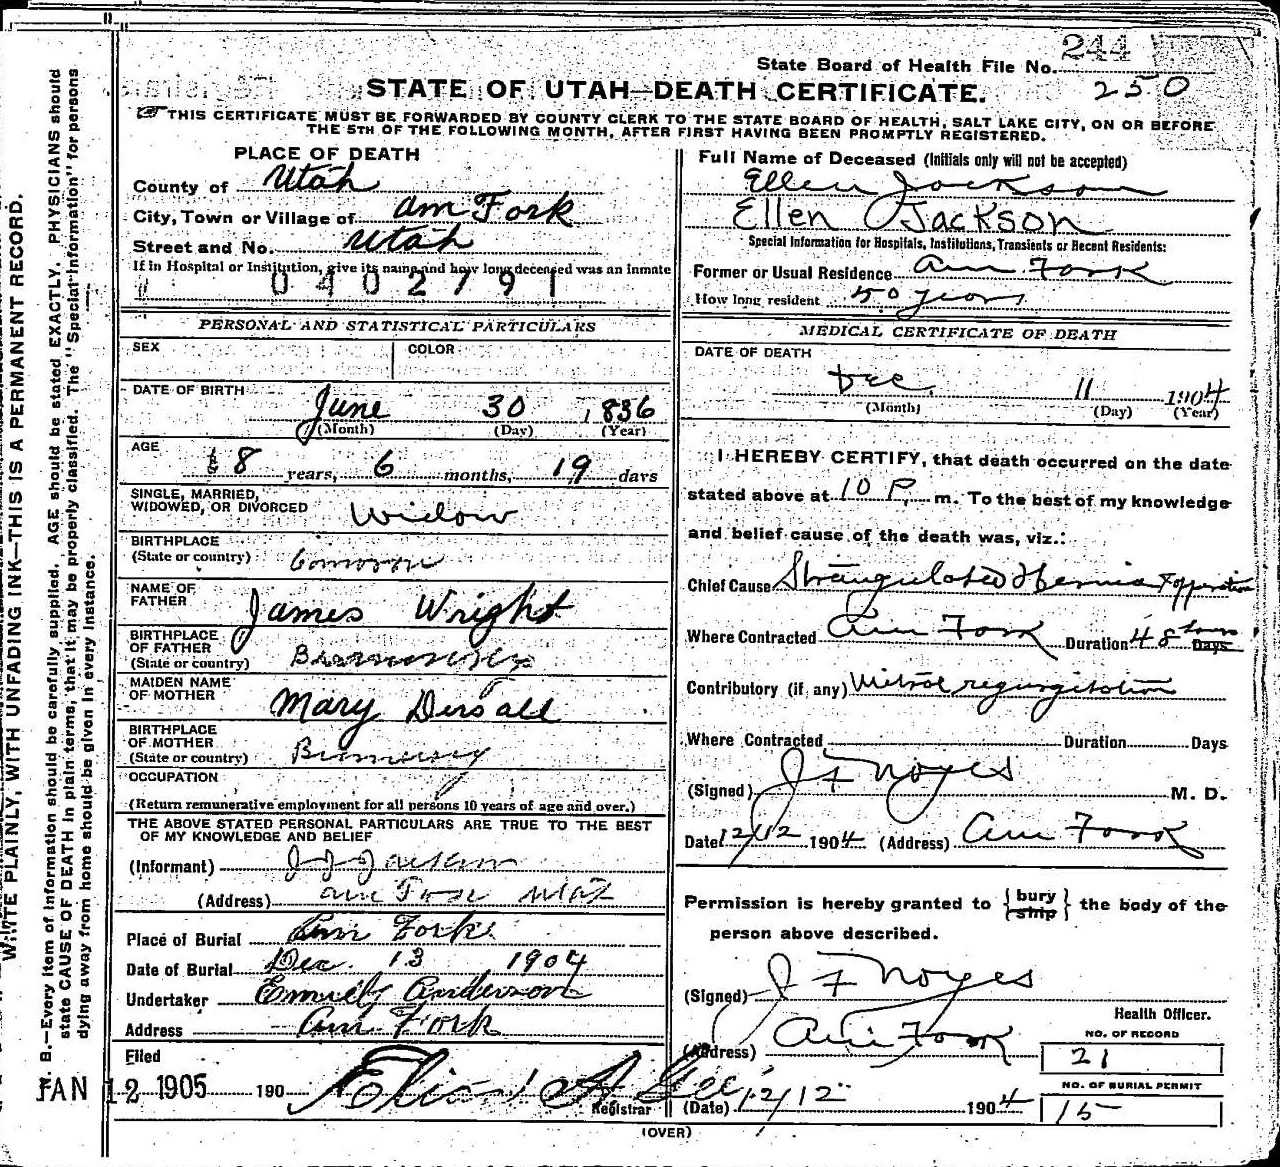 State Board of Health File No. 244
250
STATE OF UTAH—DEATH CERTIFICATE.
THIS CERTIFICATE MUST BE FORWARDED BY COUNTY CLERK TO THE STATE BOARD OF HEALTH, SALT LAKE CITY, ON OR BEFORE
THE 5TH OF THE FOLLOWING MONTH, AFTER FIRST HAVING BEEN PROMPTLY REGISTERED.
WRITE PLAINLY, WITH UNFADING INK—THIS IS A PERMANENT RECORD.
N. B.—Every item of information should be carefully supplied. AGE should be stated EXACTLY. PHYSICIANS should
state CAUSE OF DEATH in plain terms, that it may be properly classified. The "Special Information" for persons
dying away from home should be given in every instance.
PLACE OF DEATH
County of Utah
City, Town or Village of Am Fork
Street and No. Utah
If in Hospital or Institution, give its name and how long deceased was an inmate
0402791
PERSONAL AND STATISTICAL PARTICULARS
SEX COLOR
DATE OF BIRTH June 30 1836
(Month) (Day) (Year)
AGE
68 years, 6 months, 19 days
SINGLE, MARRIED,
WIDOWED, OR DIVORCED Widow
BIRTHPLACE
(State or country)
NAME OF
FATHER James Wright
BIRTHPLACE
OF FATHER
(State or country)
MAIDEN NAME
OF MOTHER Mary
BIRTHPLACE
OF MOTHER
(State or country)
OCCUPATION
(Return remunerative employment for all persons 10 years of age and over.)
THE ABOVE STATED PERSONAL PARTICULARS ARE TRUE TO THE BEST
OF MY KNOWLEDGE AND BELIEF
(Informant) J J Jackson
(Address) Am Fork Utah
Place of Burial Am Fork
Date of Burial Dec. 13 1904
Undertaker Emily Anderson
Address Am Fork
Filed
JAN 12 1905 190 Elias A Gee
Registrar
Full Name of Deceased (Initials only will not be accepted)
Ellen Jackson
Ellen Jackson
Special Information for Hospitals, Institutions, Transients or Recent Residents:
Former or Usual Residence Am Fork
How long resident 50 years
MEDICAL CERTIFICATE OF DEATH
DATE OF DEATH
Dec. 11 1904
(Month) (Day) (Year)
I HEREBY CERTIFY, that death occurred on the date
stated above at 10 P. m. To the best of my knowledge
and belief cause of the death was, viz.:
Chief Cause Strangulated Hernia & opperation
Where Contracted Am Fork Duration 48 hours Days
Contributory (if any) Mitral regurgitation
Where Contracted Duration Days
(Signed) J F Noyes M. D.
Date 12/12 1904 (Address) Am Fork
Permission is hereby granted to {bury ship} the body of the
person above described.
(Signed) J F Noyes
Health Officer.
(Address) Am Fork
NO. OF RECORD
21
NO. OF BURIAL PERMIT
15
(Date) 12/12 1904
(OVER)